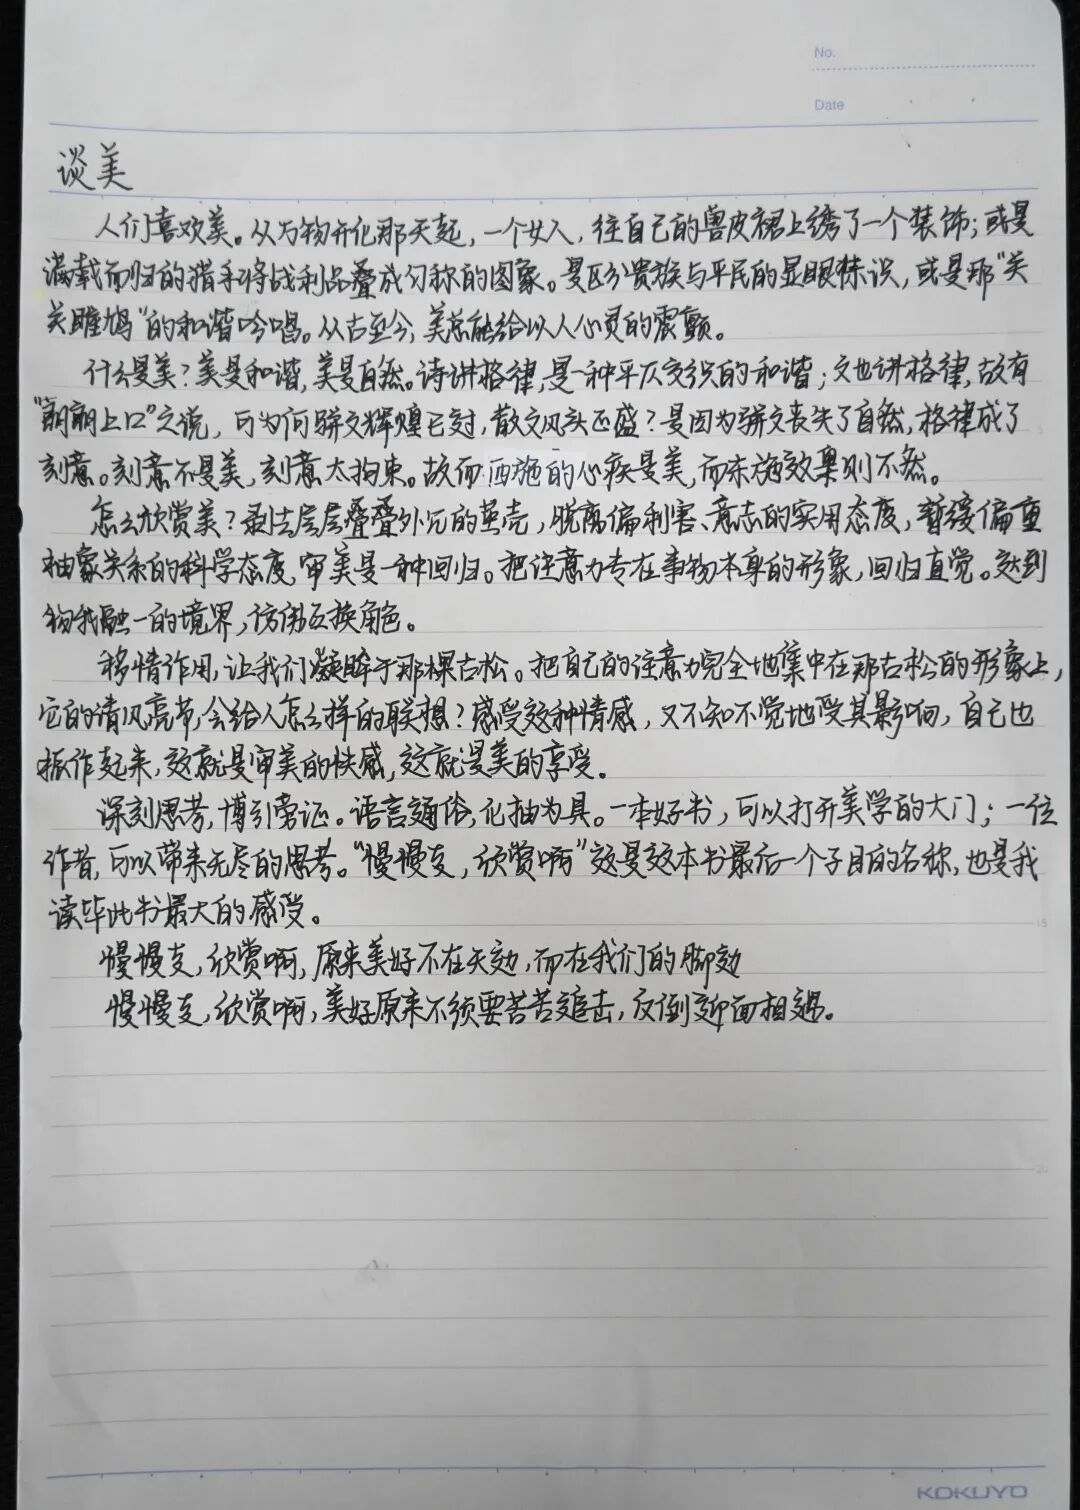 No.
Date
谈美
人们喜欢美。从万物开化那天起，一个女人，往自己的兽皮裙上绣了一个装饰；或是
满载而归的猎手将战利品叠成匀称的图象。是区分贵族与平民的显眼标识，或是那“关
关雎鸠”的和谐吟唱。从古至今，美总能给以人心灵的震颤。
什么是美？美是和谐，美是自然。诗讲格律，是一种平仄交织的和谐；文也讲格律，故有
“朗朗上口”之说，可为何骈文辉煌已过，散文风头正盛？是因为骈文丧失了自然，格律成了
刻意。刻意不是美，刻意太拘束。故而西施的心疾是美，而东施效颦则不然。
怎么欣赏美？剥去层层叠叠外冗的茧壳，脱离偏利害、意志的实用态度，暂缓偏重
抽象关系的科学态度，审美是一种回归。把注意力专在事物本身的形象，回归直觉。达到
物我融一的境界，仿佛互换角色。
移情作用，让我们凝眸于那棵古松。把自己的注意力完全地集中在那古松的形象上，
它的清风亮节，会给人怎么样的联想？感受这种情感，又不知不觉地受其影响，自己也
振作起来，这就是审美的快感，这就是美的享受。
深刻思考，博引旁证。语言通俗，化抽为具。一本好书，可以打开美学的大门；一位
作者，可以带来无尽的思考。“慢慢走，欣赏啊”这是这本书最后一个子目的名称，也是我
读毕此书最大的感受。
慢慢走，欣赏啊，原来美好不在天边，而在我们的脚边
慢慢走，欣赏啊，美好原来不须要苦苦追击，反倒迎面相遇。
15
20
KOKUYO